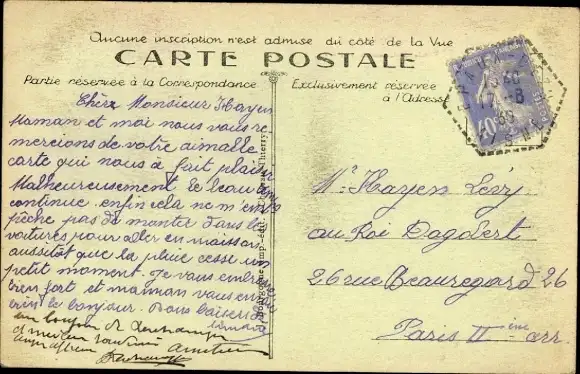 Aucune inscription n'est admise du côté de la Vue
CARTE POSTALE
Partie réservée à la Correspondance
Exclusivement réservée
à l'Adresse
Chère Monsieur Hayen
Maman et moi nous vous re-
mercions de votre aimable
carte qui nous à fait plaisir
Malheureusement le beau
continue enfin cela ne m'em
pêche pas de monter dans les
voitures pour aller en
aussitôt que la pluie cesse un
petit moment. Je vous embrasse
bien fort et maman vous en
bien le bonjour. Bons baisers de
un bonjour de
Mr Hayen Lévy
au Roi Dagobert
26 rue Beauregard 26
Paris II ème arr.
40